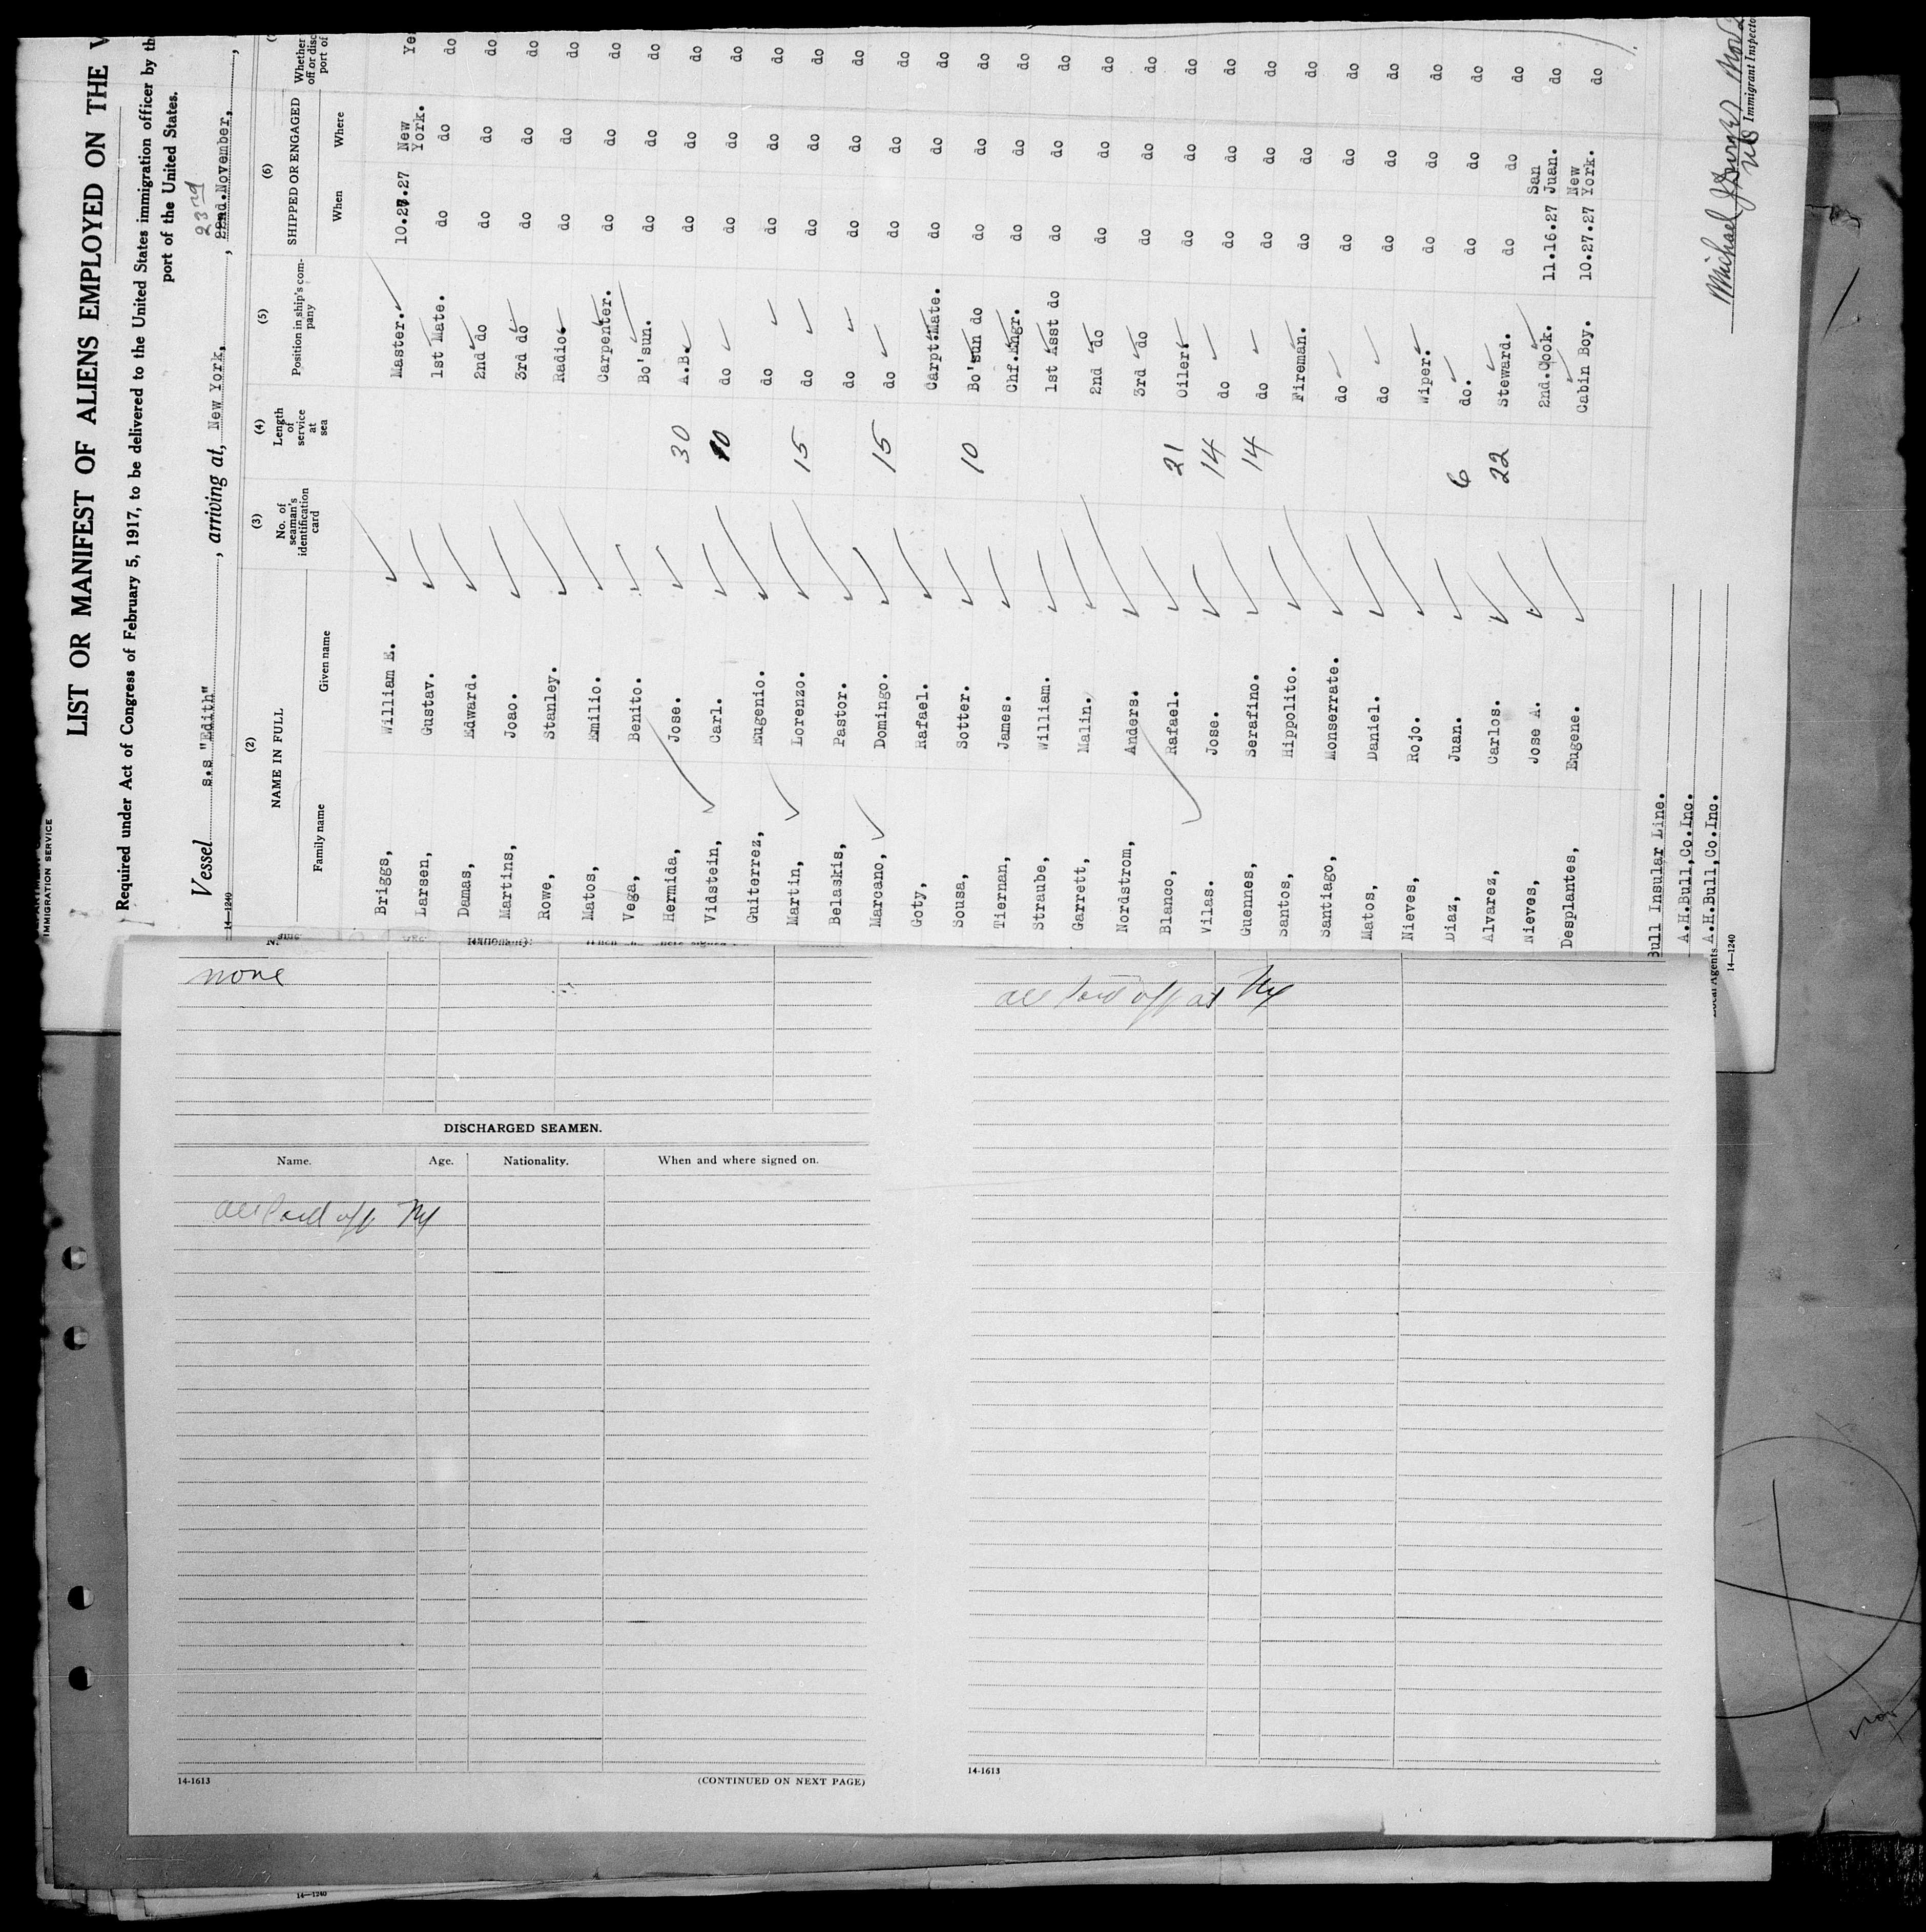 LIST OR MANIFEST OF ALIENS EMPLOYED ON THE
IMMIGRATION SERVICE
Required under Act of Congress of February 5, 1917, to be delivered to the United States immigration officer by
port of the United States.
23rd
Vessel s.s "Edith", arriving at, New York, 22nd.November,
14—1240
(2) (3) (4) (5) (6)
NAME IN FULL No. of seaman's identification card Length of service at sea Position in ship's company SHIPPED OR ENGAGED Whether
Family name Given name When Where
Briggs, William E. Master. 10.27.27 New York. Yes
Larsen, Gustav. 1st Mate. do do do
Damas, Edward. 2nd do do do do
Martins, Joao. 3rd do do do do
Rowe, Stanley. Radio. do do do
Matos, Emilio. Carpenter. do do do
Vega, Benito. Bo'sun. do do do
Hermida, Jose. 30 A.B. do do do
Vidstein, Carl. 10 do do do do
Guiterrez, Eugenio. do do do do
Martin, Lorenzo. 15 do do do do
Belaskis, Pastor. do do do do
Marcano, Domingo. 15 do do do do
Goty, Rafael. Carpt.Mate. do do do
Sousa, Sotter. 10 Bo'sun do do do do
Tiernan, James. Chf.Engr. do do do
Straube, William. 1st Asst do do do do
Garrett, Malin. 2nd do do do do
Nordstrom, Anders. 3rd do do do do
Blanco, Rafael. 21 Oiler. do do do
Vilas. Jose. 14 do do do do
Guennes, Serafino. 14 do do do do
Santos, Hippolito. Fireman. do do do
Santiago, Monserrate. do do do do
Matos, Daniel. do do do do
Nieves, Rojo. Wiper. do do do
Diaz, Juan. 6 do. do do do
Alvarez, Carlos. 22 Steward. do do do
Nieves, Jose A. 2nd.Cook. 11.16.27 San Juan. do
Desplantes, Eugene. Cabin Boy. 10.27.27 New York. do
Bull Insular Line.
A.H.Bull,Co.Inc.
Local Agents A.H.Bull,Co.Inc.
14—1240
Michael J
Immigrant Inspector
none
DISCHARGED SEAMEN.
Name. Age. Nationality. When and where signed on.
all paid off Ny
14-1613
(CONTINUED ON NEXT PAGE)
all paid off at Ny
14-1613
14—1240